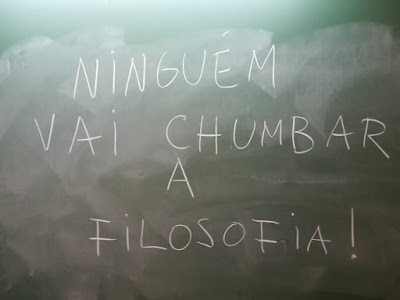 NINGUÉM
VAI CHUMBAR
A
FILOSOFIA!